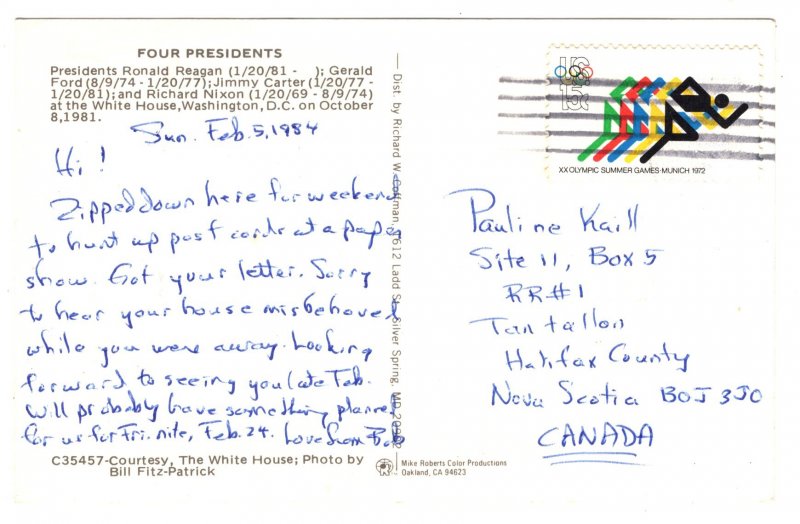 FOUR PRESIDENTS
Presidents Ronald Reagan (1/20/81 -    ); Gerald
Ford (8/9/74 - 1/20/77); Jimmy Carter (1/20/77 -
1/20/81); and Richard Nixon (1/20/69 - 8/9/74)
at the White House, Washington, D.C. on October
8, 1981.
Sun. Feb. 5, 1984
Hi!
Zipped down here for weekend
to hunt up post cards at a paper
show. Got your letter. Sorry
to hear your house misbehaved
while you were away. Looking
forward to seeing you late Feb.
Will probably have something planned
for us for Fri. nite, Feb. 24. Love from Bob
C35457-Courtesy, The White House; Photo by
Bill Fitz-Patrick
Dist. by Richard W. Coffman, 612 Ladd St., Silver Spring, MD
Mike Roberts Color Productions
Oakland, CA 94623
XX OLYMPIC SUMMER GAMES·MUNICH 1972
Pauline Kaill
Site 11, Box 5
RR#1
Tantallon
Halifax County
Nova Scotia B0J 3J0
CANADA